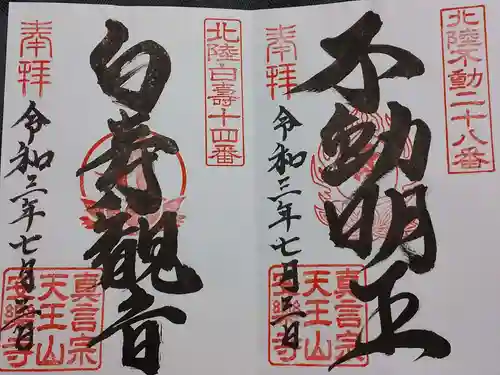 北陸不動二十八番
奉拝
不動明王
令和三年七月三日
真言宗
天王山
安樂寺
北陸白壽十四番
奉拝
白寿観音
令和三年七月三日
真言宗
天王山
安樂寺